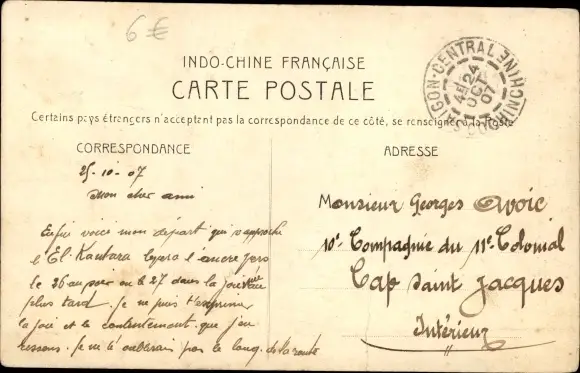 6 €
INDO-CHINE FRANÇAISE
CARTE POSTALE
Certains pays étrangers n'acceptent pas la correspondance de ce côté, se renseigner à la Poste
SAIGON-CENTRAL COCHINCHINE
24
OCT
07
CORRESPONDANCE
25-10-07
Mon cher ami
Enfin voici mon départ qui s'approche
l'El-Kantara lèvera l'ancre vers
le 26 au soir ou le 27 dans la journée
plus tard. Je ne puis t'exprimer
la joie et le contentement que j'en
ressens. Je ne t'oublierais pas le long de la route
ADRESSE
Monsieur Georges Avoic
10e Compagnie du 11e Colonial
Cap Saint Jacques
Intérieur